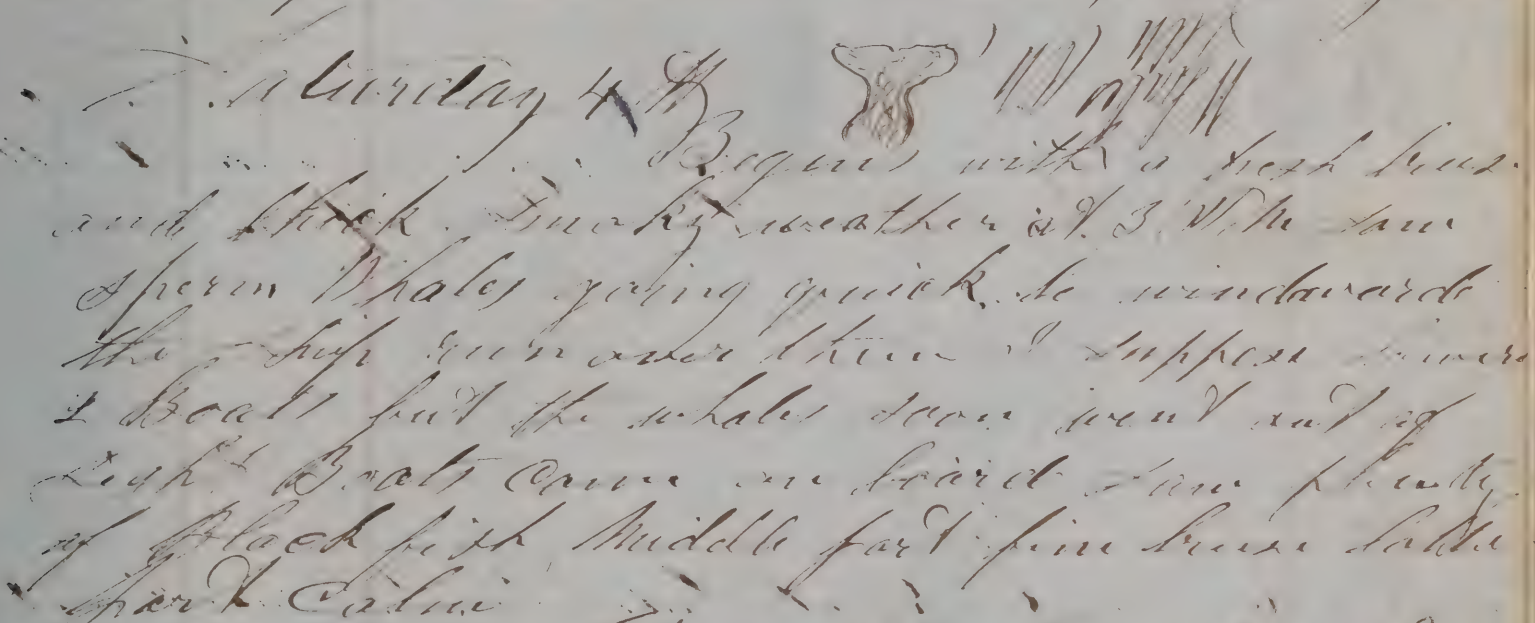 Saturday 4th
Begins with a fresh breeze
and thick Smoky weather at 3 P.M. saw
sperm Whales going quick to windward
the ship run over them I suppose lowered
2 Boats but the whales soon went out of
Sight Boats came on board saw plenty
of Black fish Middle part fine breeze latter
part Calm